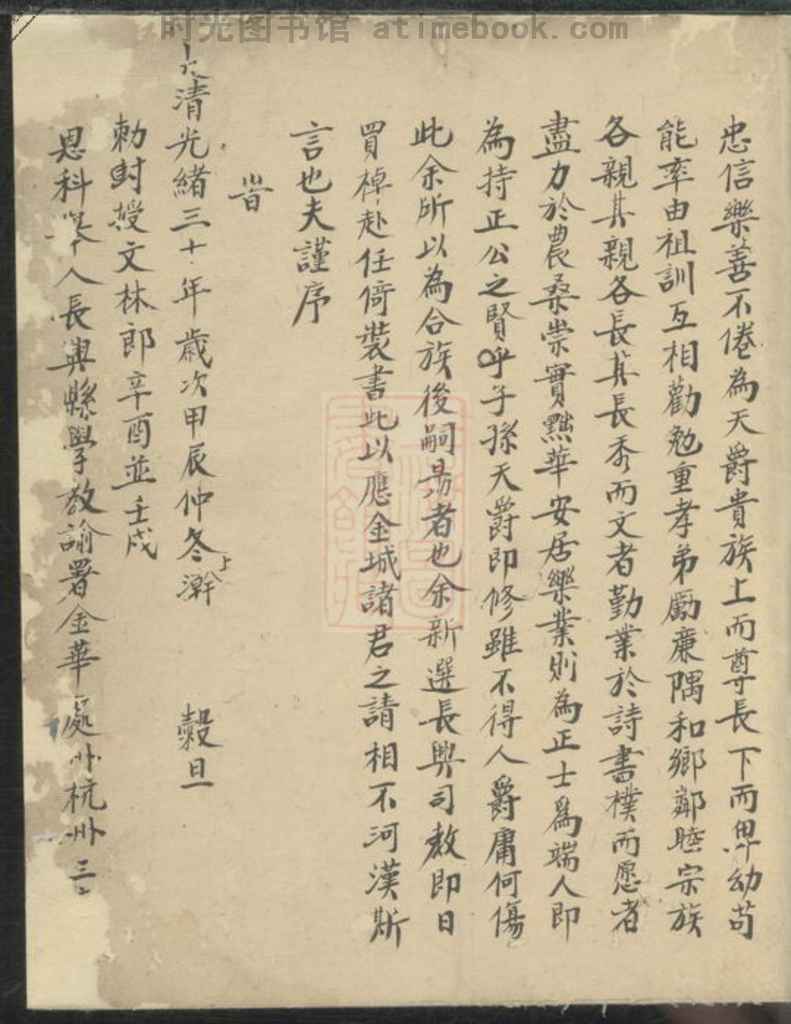 时光图书馆 atimebook.com
忠信樂善不倦為天爵貴族上而尊長下而卑幼苟
能率由祖訓互相勸勉重孝弟勵廉隅和鄉鄰睦宗族
各親其親各長其長秀而文者勤業於詩書樸而愿者
盡力於農桑崇實黜華安居樂業則為正士為端人即
為持正公之賢乎子孫天爵即修雖不得人爵庸何傷
此余所以為合族後嗣勗者也余新選長興司教即日
買棹赴任倚裝書此以應金城諸君之請相不河漢斯
言也夫謹序
峕
大清光緒三十年歲次甲辰仲冬上澣 榖旦
勅封授文林郎辛酉並壬戌
恩科舉人長興縣學教諭署金華處州杭州三